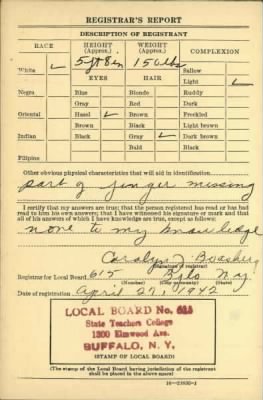 REGISTRAR'S REPORT
DESCRIPTION OF REGISTRANT
RACE HEIGHT (Approx.) WEIGHT (Approx.) COMPLEXION
5 ft 8 in 150 lbs
White ✓ Sallow
EYES HAIR Light ✓
Negro Blue Blonde Ruddy
Gray Red Dark
Oriental Hazel ✓ Brown Freckled
Brown Black Light brown
Indian Black Gray ✓ Dark brown
Bald Black
Filipino
Other obvious physical characteristics that will aid in identification
part of finger missing
I certify that my answers are true; that the person registered has read or has had
read to him his own answers; that I have witnessed his signature or mark and that
all of his answers of which I have knowledge are true, except as follows:
none to my knowledge
Carolyn J.
(Signature of registrar)
Registrar for Local Board 615 Bflo N.Y.
(Number) (City or county) (State)
Date of registration April 27, 1942
LOCAL BOARD No. 615
State Teachers College
1300 Elmwood Ave.
BUFFALO, N. Y.
(STAMP OF LOCAL BOARD)
(The stamp of the Local Board having jurisdiction of the registrant
shall be placed in the above space)
16—21630-1